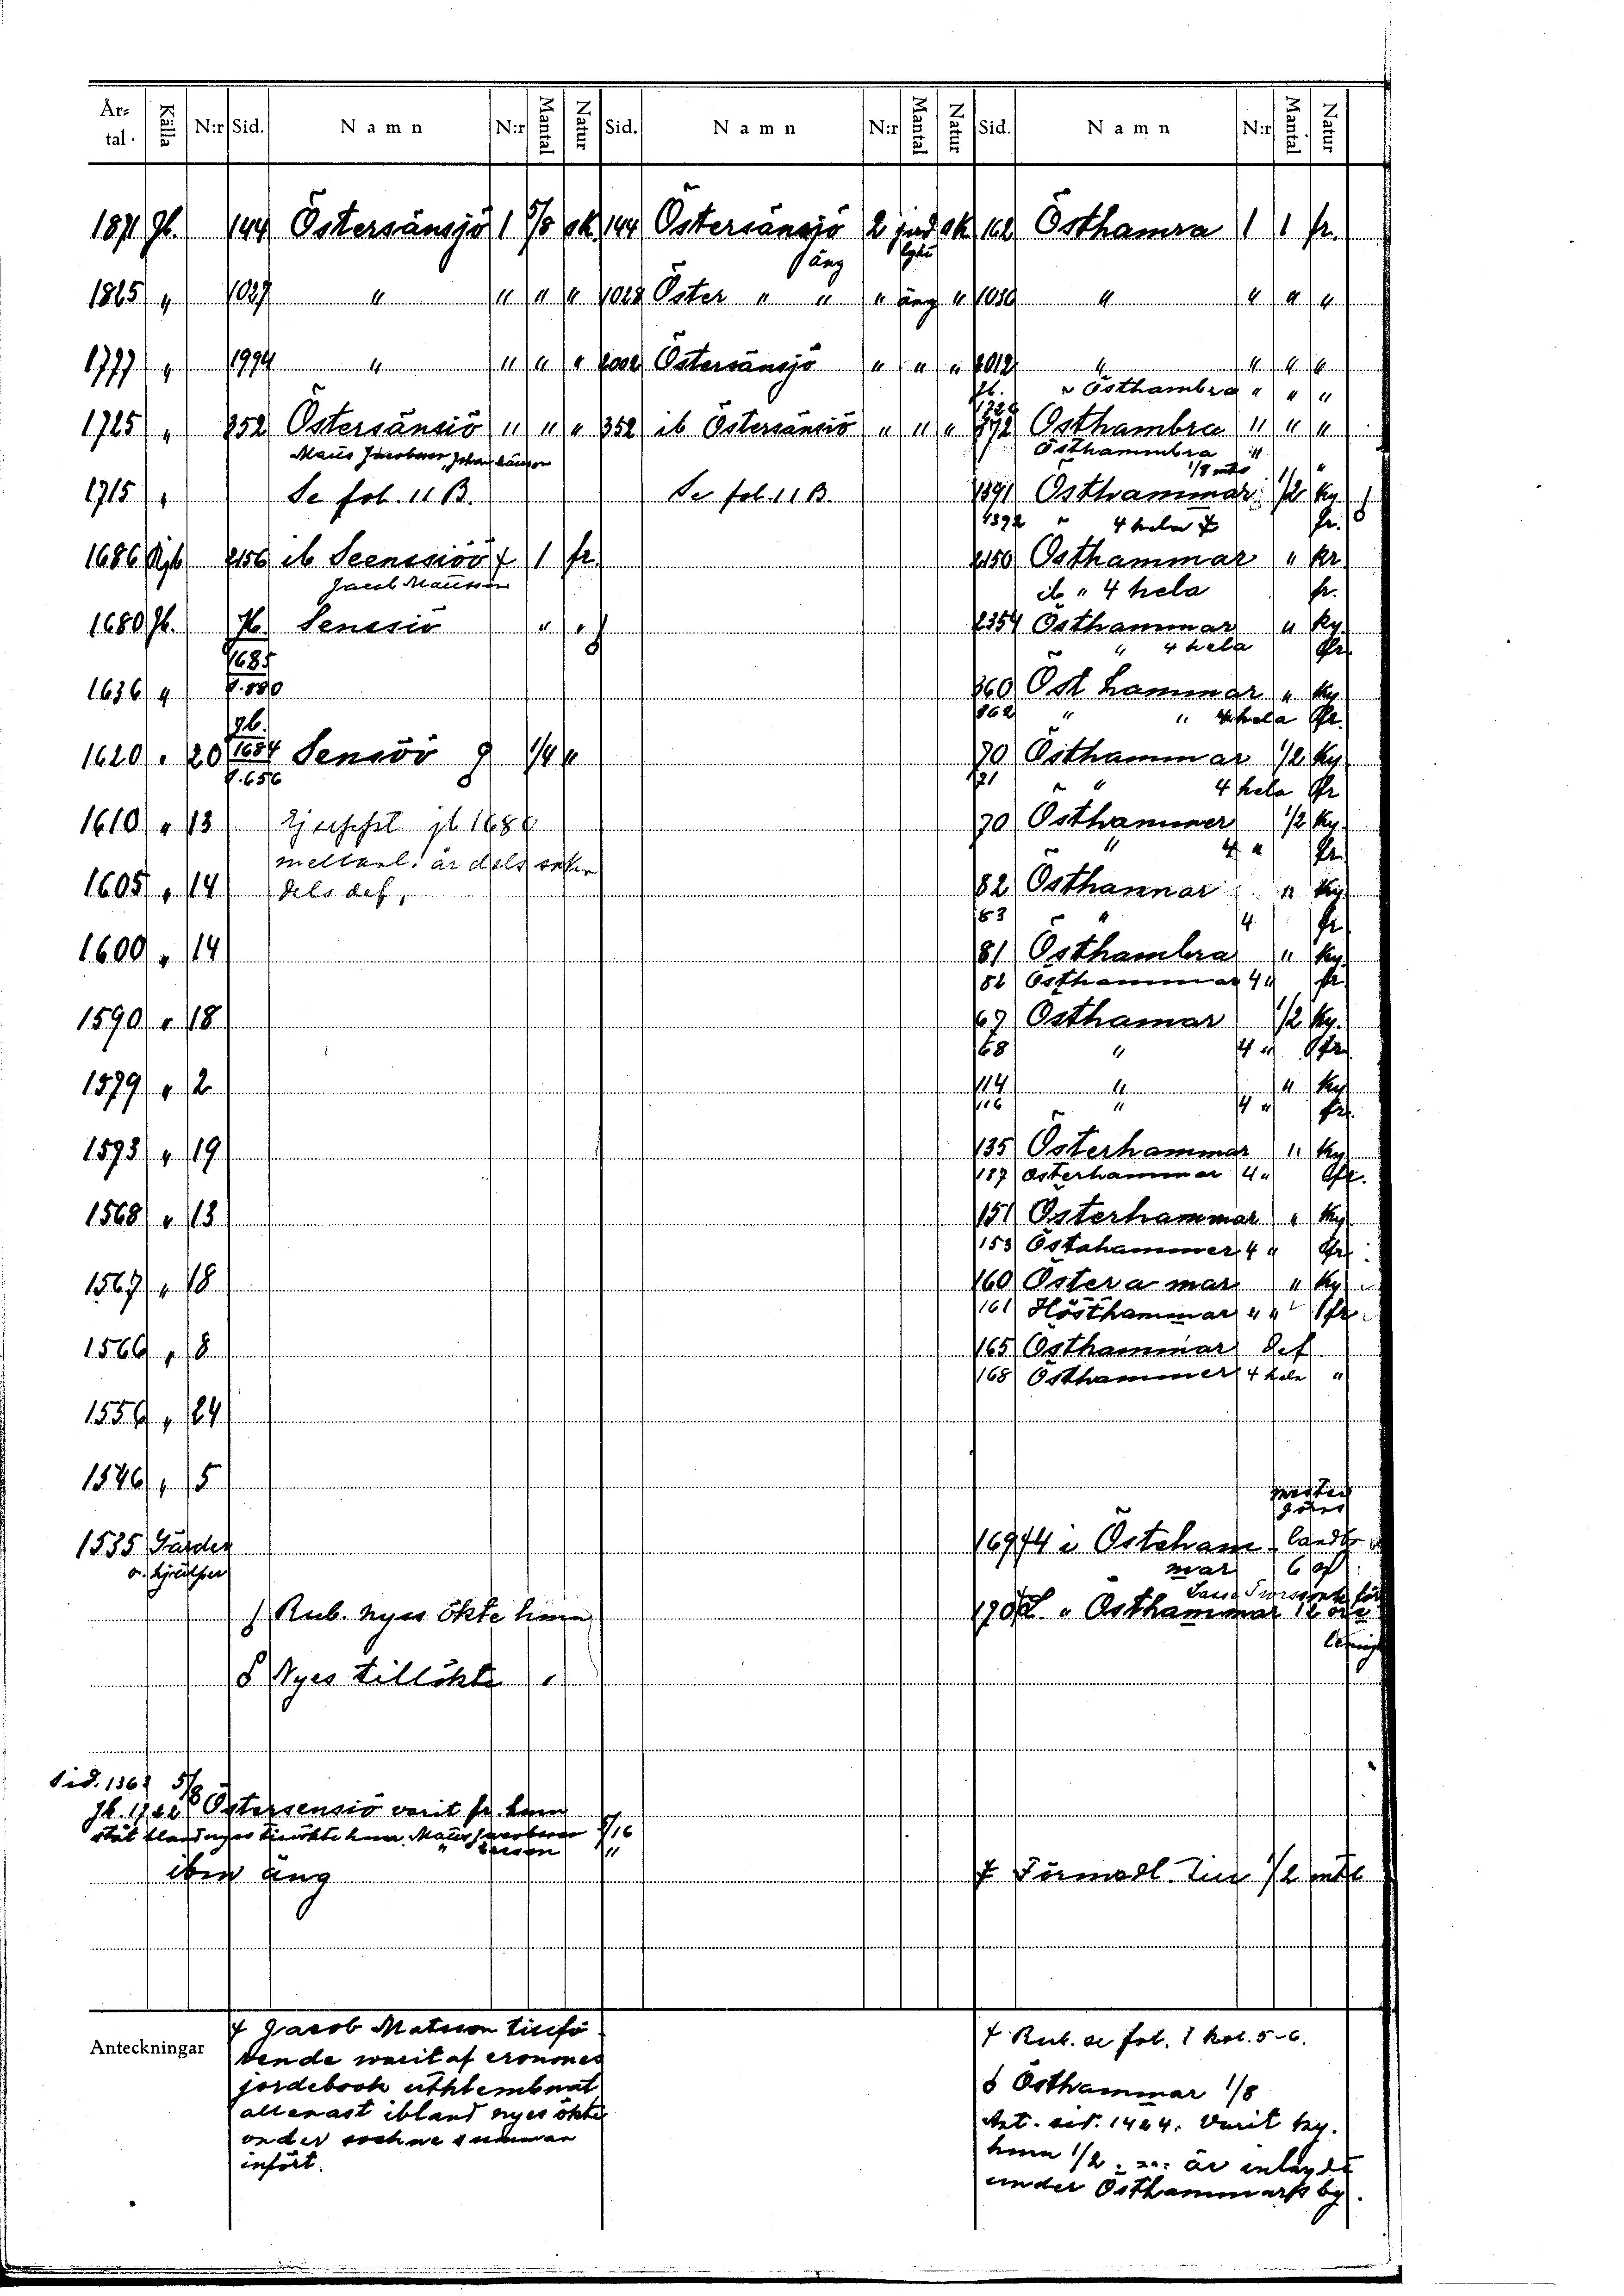 År-tal. Källa N:r Sid. Namn N:r Mantal Natur Sid. Namn N:r Mantal Natur Sid. Namn N:r Mantal Natur
1871 Jb. 144 Östersänsjö 1 5/8 sk 144 Östersänsjö 2 sk 162 Östhamra 1 1 fr.
äng
1825 " 1027 " " " " 1028 Öster " " " äng " 1030 " " " "
1777 " 1994 " " " " 2002 Östersänsjö " " " 2012 " " " "
Jb. " Östhambra " " "
1725 " 352 Östersänsiö " " " 352 ib Östersänsiö " " " 372 Östhambra " " "
Östhammbra "
1715 " Se fol. 11 B. Se fol. 11 B. 1391 Östhammar 1/2 ky.
1392 " 4 hela fr.
1686 Rjb 2156 ib Seenssiöö 1 fr. 2150 Östhammar " kr
Jacob Mattsson ib " 4 hela fr.
1680 Jb. Jb. Senssiö " " 2354 Östhammar " ky.
1685 " 4 hela fr.
1636 " 360 Öst hammar " ky
362 " " 4 hela fr.
Jb.
1620 " 20 1684 Sensöö 1/4 " 70 Östhammar 1/2 ky
s. 656 71 " " 4 hela fr
1610 " 13 Ej jb 1680 70 Östhammer 1/2 ky.
" 4 " fr.
1605 " 14 dels def. 82 Östhannar " ky
83 " 4 fr
1600 " 14 81 Östhambra " ky.
82 Östhammar 4 " fr
1590 " 18 67 Östhamar 1/2 ky.
68 " 4 " fr
1579 " 2 114 " " ky
116 " 4 " fr.
1573 " 19 135 Österhammar " ky
137 Österhammar 4 " fr.
1568 " 13 151 Österhammar " ky
153 Östahammer 4 " fr.
1567 " 18 160 Östera mar " ky
161 Hösthammar " " fr
1566 " 8 165 Östhammar def
168 Östhammer 4 hela "
1556 " 24
1546 " 5
1535 Gärder 169 74 iÖsteham- landbo
o. hjälper mar 6
Rub. nyss ökte hmn 170 " Östhammar 12 öre
Nyes tillökte "
Sid. 1363 5/8
Jb. 1722 Östersensiö varit fr. hmn
5/16
ibm äng Förmedl. till 1/2 mtl
Anteckningar
Jacob Matsson
vende warit af cronones
jordebook
allenast ibland nyes ökte
onder sochne summan
infört.
Rub. se fol. 1 kol. 5-6.
Östhammar 1/8
Ant. sid. 1424. Varit ky.
hmn 1/2 är inlagdt
under Östhammars by.